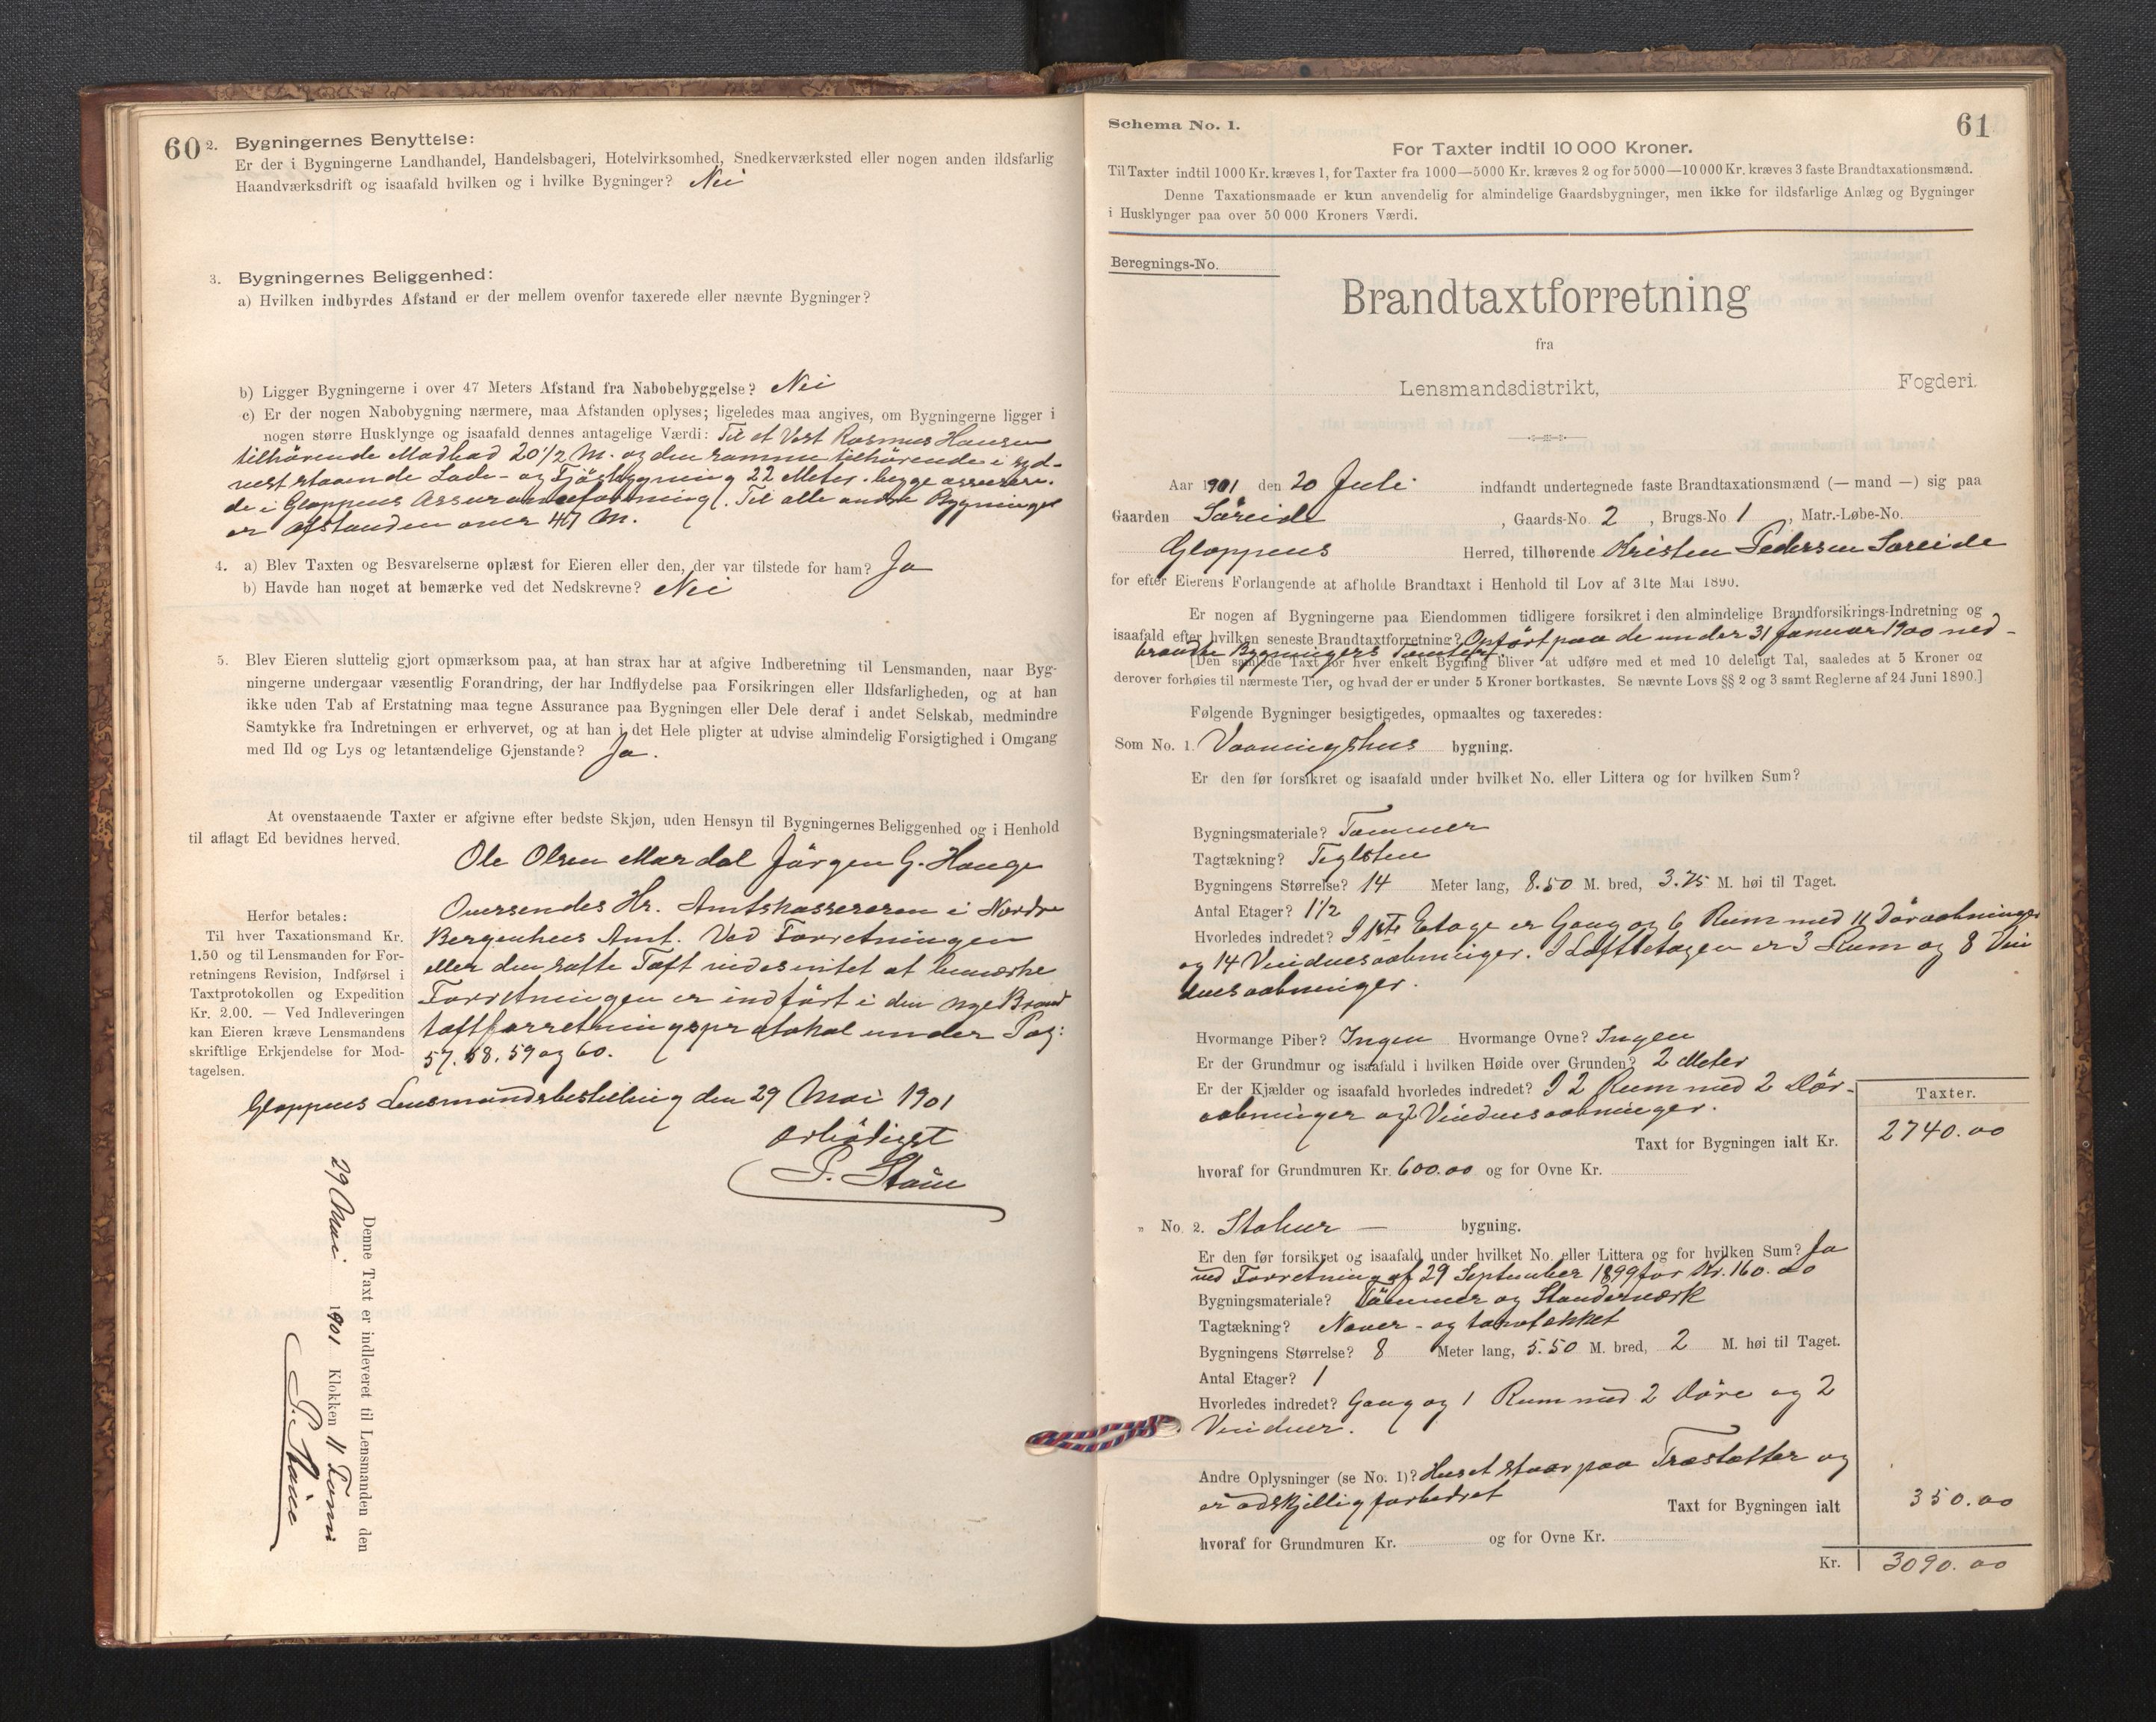 60
2. Bygningernes Benyttelse:
Er der i Bygningerne Landhandel, Handelsbageri, Hotelvirksomhed, Snedkerværksted eller nogen anden ildsfarlig
Haandværksdrift og isaafald hvilken og i hvilke Bygninger? Nei
3. Bygningernes Beliggenhed:
a) Hvilken indbyrdes Afstand er der mellem ovenfor taxerede eller nævnte Bygninger?
b) Ligger Bygningerne i over 47 Meters Afstand fra Nabobebyggelse? Nei
c) Er der nogen Nabobygning nærmere, maa Afstanden oplyses; ligeledes maa angives, om Bygningerne ligger i
nogen større Husklynge og isaafald dennes antagelige Værdi: Til et Vest Rasmus Hansen
tilhørende Madbad 20 1/2 M. og den samme tilhørende i syd-
vest staaende Lade- og Fjøsbygning 22 Meter. begge assurere-
de i Gloppens Assuranceforening. Til alle andre Bygninger
er Afstanden over 47 M.
4. a) Blev Taxten og Besvarelserne oplæst for Eieren eller den, der var tilstede for ham? Ja
b) Havde han noget at bemærke ved det Nedskrevne? Nei
5. Blev Eieren sluttelig gjort opmærksom paa, at han strax har at afgive Indberetning til Lensmanden, naar Byg-
ningerne undergaar væsentlig Forandring, der har Indflydelse paa Forsikringen eller Ildsfarligheden, og at han
ikke uden Tab af Erstatning maa tegne Assurance paa Bygningen eller Dele deraf i andet Selskab, medmindre
Samtykke fra Indretningen er erhvervet, og at han i det Hele pligter at udvise almindelig Forsigtighed i Omgang
med Ild og Lys og letantændelige Gjenstande? Ja.
At ovenstaaende Taxter er afgivne efter bedste Skjøn, uden Hensyn til Bygningernes Beliggenhed og i Henhold
til aflagt Ed bevidnes herved.
Ole Olsen Mardal Jørgen G. Hauge
Herfor betales:
Til hver Taxationsmand Kr.
1.50 og til Lensmanden for For-
retningens Revision, Indførsel i
Taxtprotokollen og Expedition
Kr. 2.00. — Ved Indleveringen
kan Eieren kræve Lensmandens
skriftlige Erkjendelse for Mod-
tagelsen.
Oversendes Hr. Amtskassereren i Nordre
Bergenhus Amt. Ved Forretningen
eller den satte Taxt vides intet at bemærke
Forretningen er indført i den nye Brand
taxtforretningsprotokol under Pag:
57. 58. 59 og 60.
Gloppens Lensmandsbestilling den 29 Mai 1901
ærbødigst
P. Støve
Denne Taxt er indleveret til Lensmanden den
29 Mai 1901 Klokken 11 Form
61
Schema No. 1.
For Taxter indtil 10 000 Kroner.
Til Taxter indtil 1000 Kr. kræves 1, for Taxter fra 1000—5000 Kr. kræves 2 og for 5000—10 000 Kr. kræves 3 faste Brandtaxationsmænd.
Denne Taxationsmaade er kun anvendelig for almindelige Gaardsbygninger, men ikke for ildsfarlige Anlæg og Bygninger
i Husklynger paa over 50 000 Kroners Værdi.
Beregnings-No.
Brandtaxtforretning
fra
Lensmandsdistrikt, Fogderi.
Aar 1901 den 20 Juli indfandt undertegnede faste Brandtaxationsmænd (— mand —) sig paa
Gaarden Søreide, Gaards-No. 2, Brugs-No 1, Matr.-Løbe-No.
Gloppens Herred, tilhørende Kristen Pedersen Søreide
for efter Eierens Forlangende at afholde Brandtaxt i Henhold til Lov af 31te Mai 1890.
Er nogen af Bygningerne paa Eiendommen tidligere forsikret i den almindelige Brandforsikrings-Indretning og
isaafald efter hvilken seneste Brandtaxtforretning? Opført paa de under 31 Januar 1900 ned-
brændte Bygningers Tomter
[Den samlede Taxt for hver enkelt Bygning bliver at udføre med et med 10 deleligt Tal, saaledes at 5 Kroner og
derover forhøies til nærmeste Tier, og hvad der er under 5 Kroner bortkastes. Se nævnte Lovs §§ 2 og 3 samt Reglerne af 24 Juni 1890.]
Følgende Bygninger besigtigedes, opmaaltes og taxeredes:
Som No. 1. Vaaningshus bygning.
Er den før forsikret og isaafald under hvilket No. eller Littera og for hvilken Sum?
Bygningsmateriale? Tømmer
Tagtækning? Teglsten
Bygningens Størrelse? 14 Meter lang, 8.50 M. bred, 3.75 M. høi til Taget.
Antal Etager? 1 1/2
Hvorledes indredet? I 1ste Etage er Gang og 6 Rum med 11 Døraabninger
og 14 Vinduesaabninger. I Loftetagen er 3 Rum og 8 Vin
duesaabninger.
Hvormange Piber? Ingen Hvormange Ovne? Ingen
Er der Grundmur og isaafald i hvilken Høide over Grunden? 2 Meter
Er der Kjælder og isaafald hvorledes indredet? I 2 Rum med 2 Dør-
aabninger og 2 Vinduesaabninger.
Taxter.
Taxt for Bygningen ialt Kr. 2740.00
hvoraf for Grundmuren Kr. 600.00 og for Ovne Kr.
" No. 2. Stabur — bygning.
Er den før forsikret og isaafald under hvilket No. eller Littera og for hvilken Sum? Ja
ved Forretning af 29 September 1899 for Kr. 160.00
Bygningsmateriale? Tømmer og Standerværk
Tagtækning? Næver- og torvtækket
Bygningens Størrelse? 8 Meter lang, 5.50 M. bred, 2 M. høi til Taget.
Antal Etager? 1
Hvorledes indredet? Gang og 1 Rum med 2 Døre og 2
Vinduer.
Andre Oplysninger (se No. 1)? Huset staar paa Træstøtter og
er adskjillig forbedret
Taxt for Bygningen ialt 350.00
hvoraf for Grundmuren Kr. og for Ovne Kr.
Kr. 3090.00